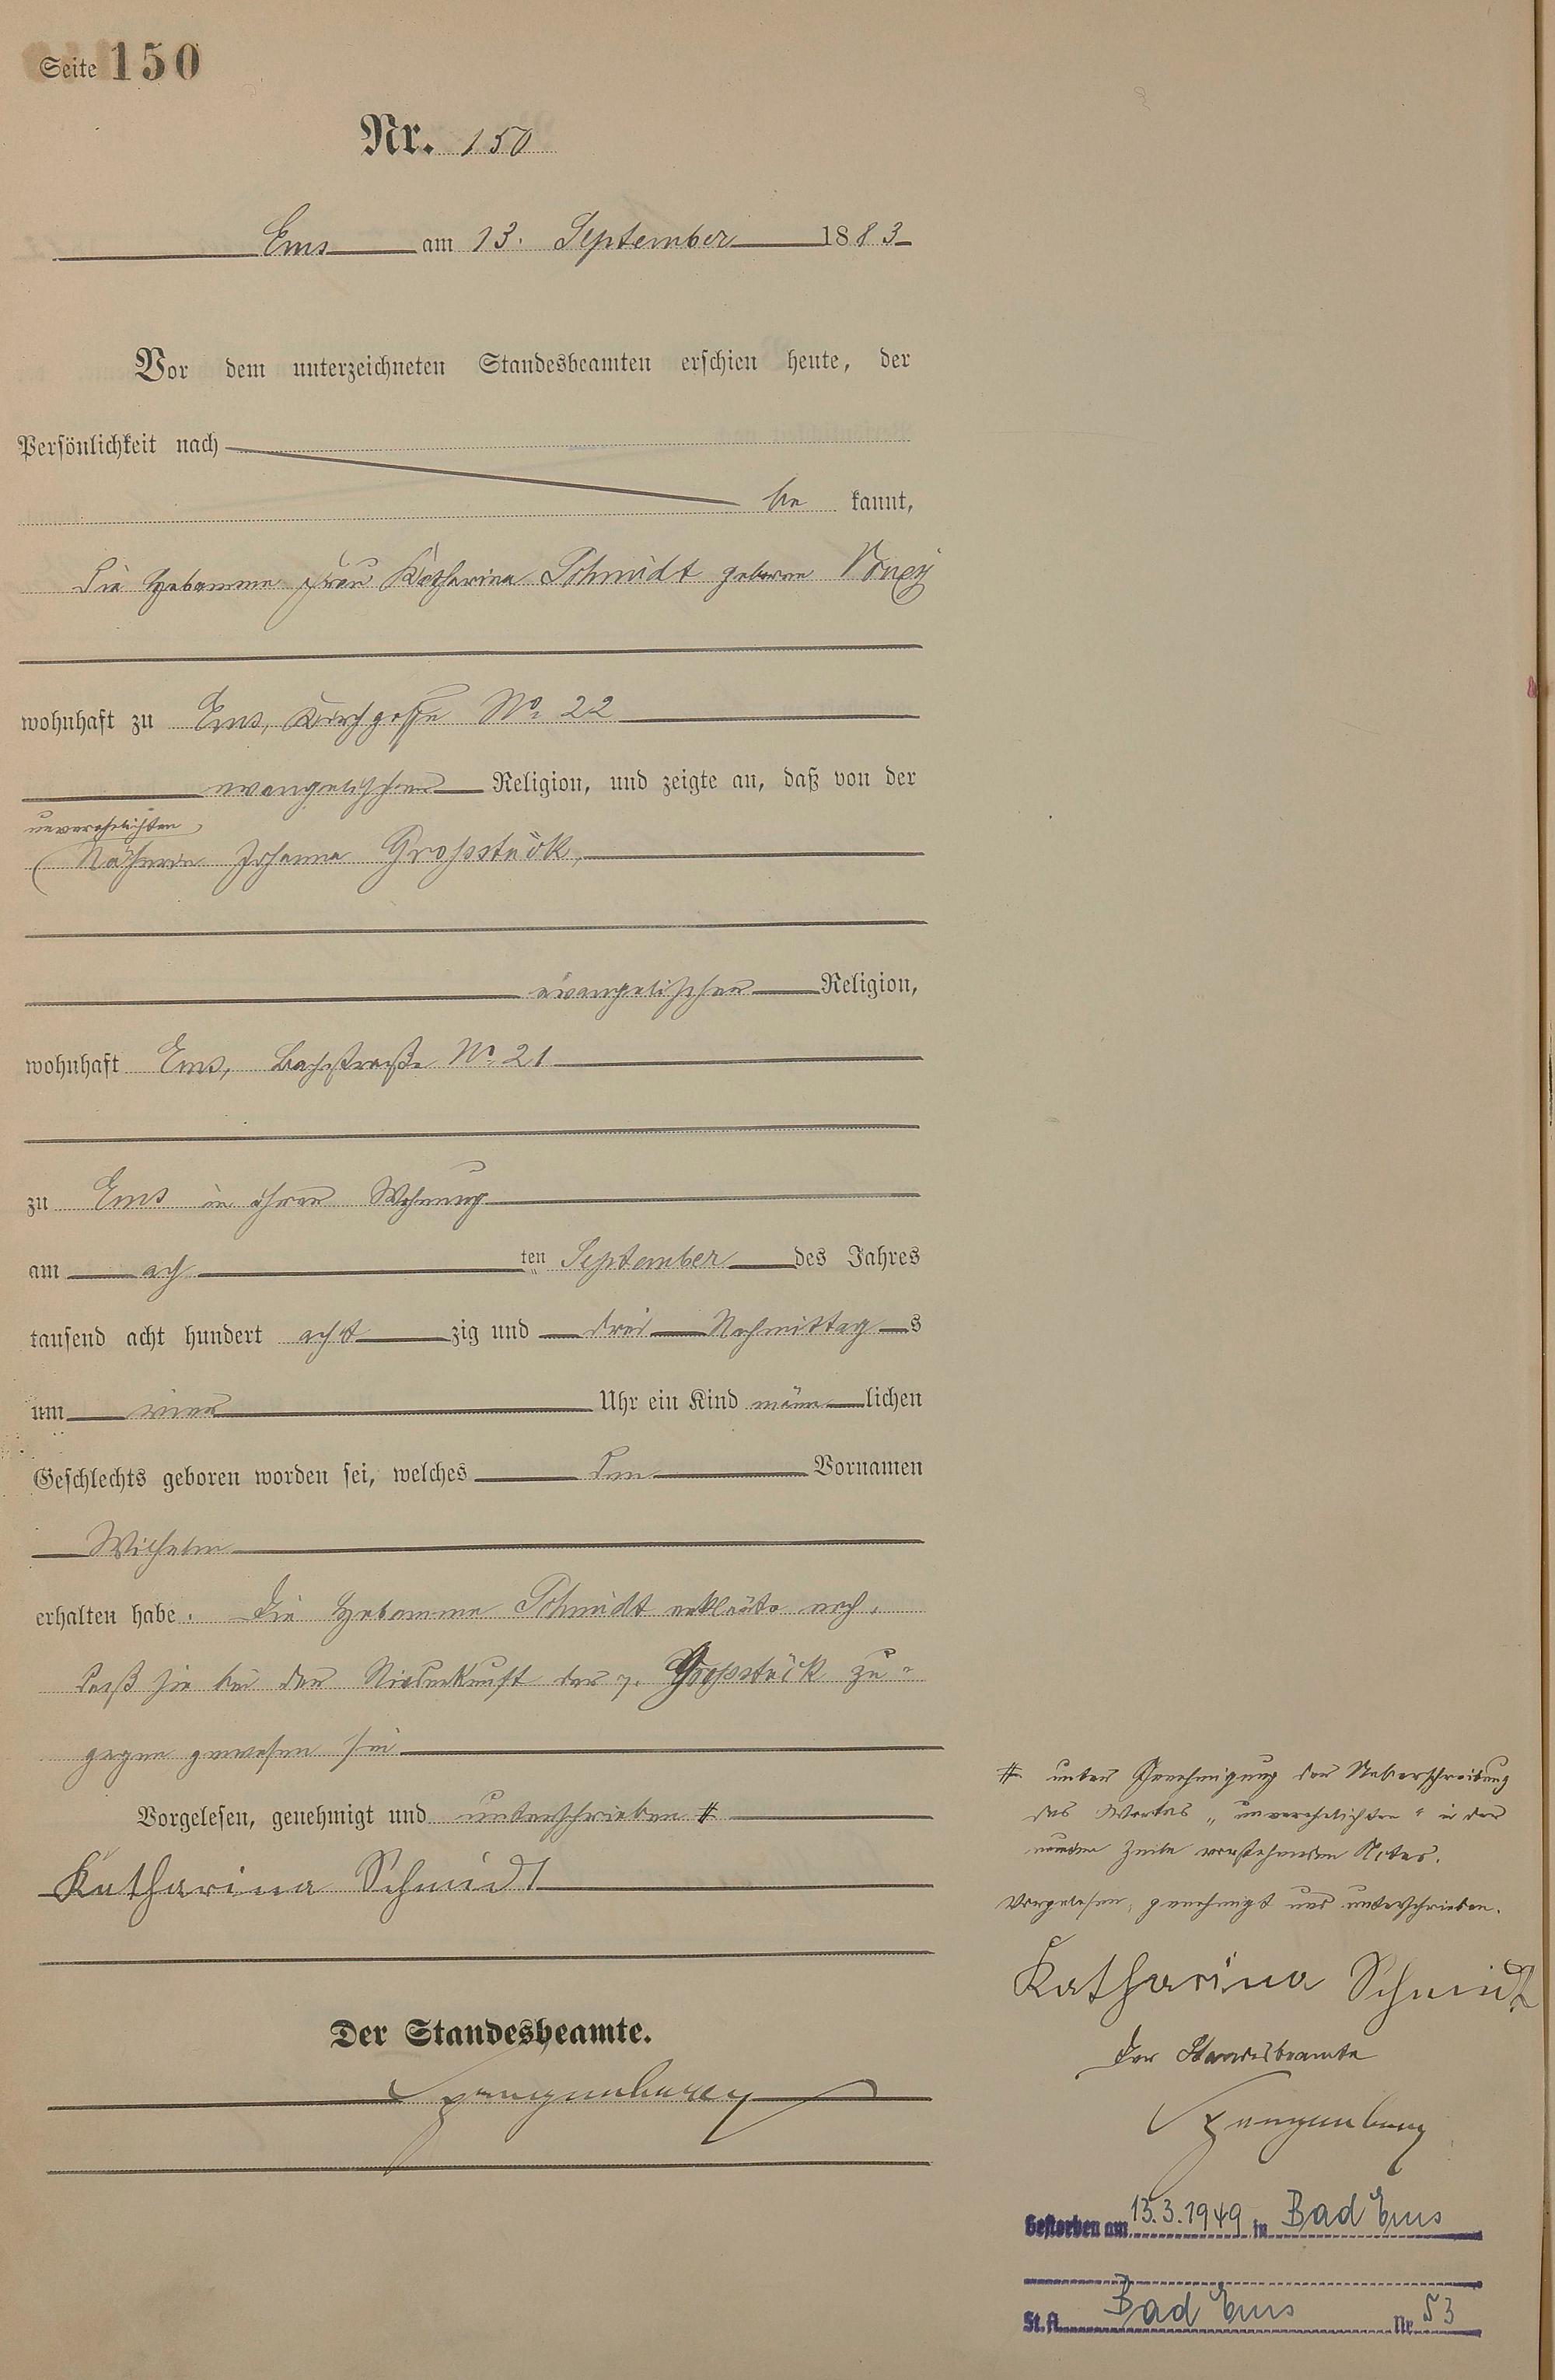 Seite 150
Nr. 150
Ems am 13. September 1883
Vor dem unterzeichneten Standesbeamten erschien heute, der
Persönlichkeit nach
be kannt,
die Hebamme Frau Katharina Schmidt geborene
wohnhaft zu Ems, Kirchgasse No. 22
evangelischer Religion, und zeigte an, daß von der
unverehelichten
Näherin Johanna Grossstück,
evangelischer Religion,
wohnhaft Ems, Bachstraße No. 21
zu Ems in ihrer Wohnung
am ach ten September des Jahres
tausend acht hundert acht zig und drei Nachmittag s
um vier Uhr ein Kind männ lichen
Geschlechts geboren worden sei, welches den Vornamen
Wilhelm
erhalten habe. Die Hebamme Schmidt erklärte noch,
daß sie bei der Niederkunft der p. Grossstück zu-
gegen gewesen sei
Vorgelesen, genehmigt und unterschrieben #
Katharina Schmidt
Der Standesbeamte.
Spangenberg
# unter Genehmigung der Ueberschreibung
des Wortes „unverehelichten" in der
neunten Zeile vorstehenden Aktes.
Vorgelesen, genehmigt und unterschrieben.
Katharina Schmidt
Der Standesbeamte
Spangenberg
Gestorben am 13.3.1949 in Bad Ems
St.A. Bad Ems Nr. 53